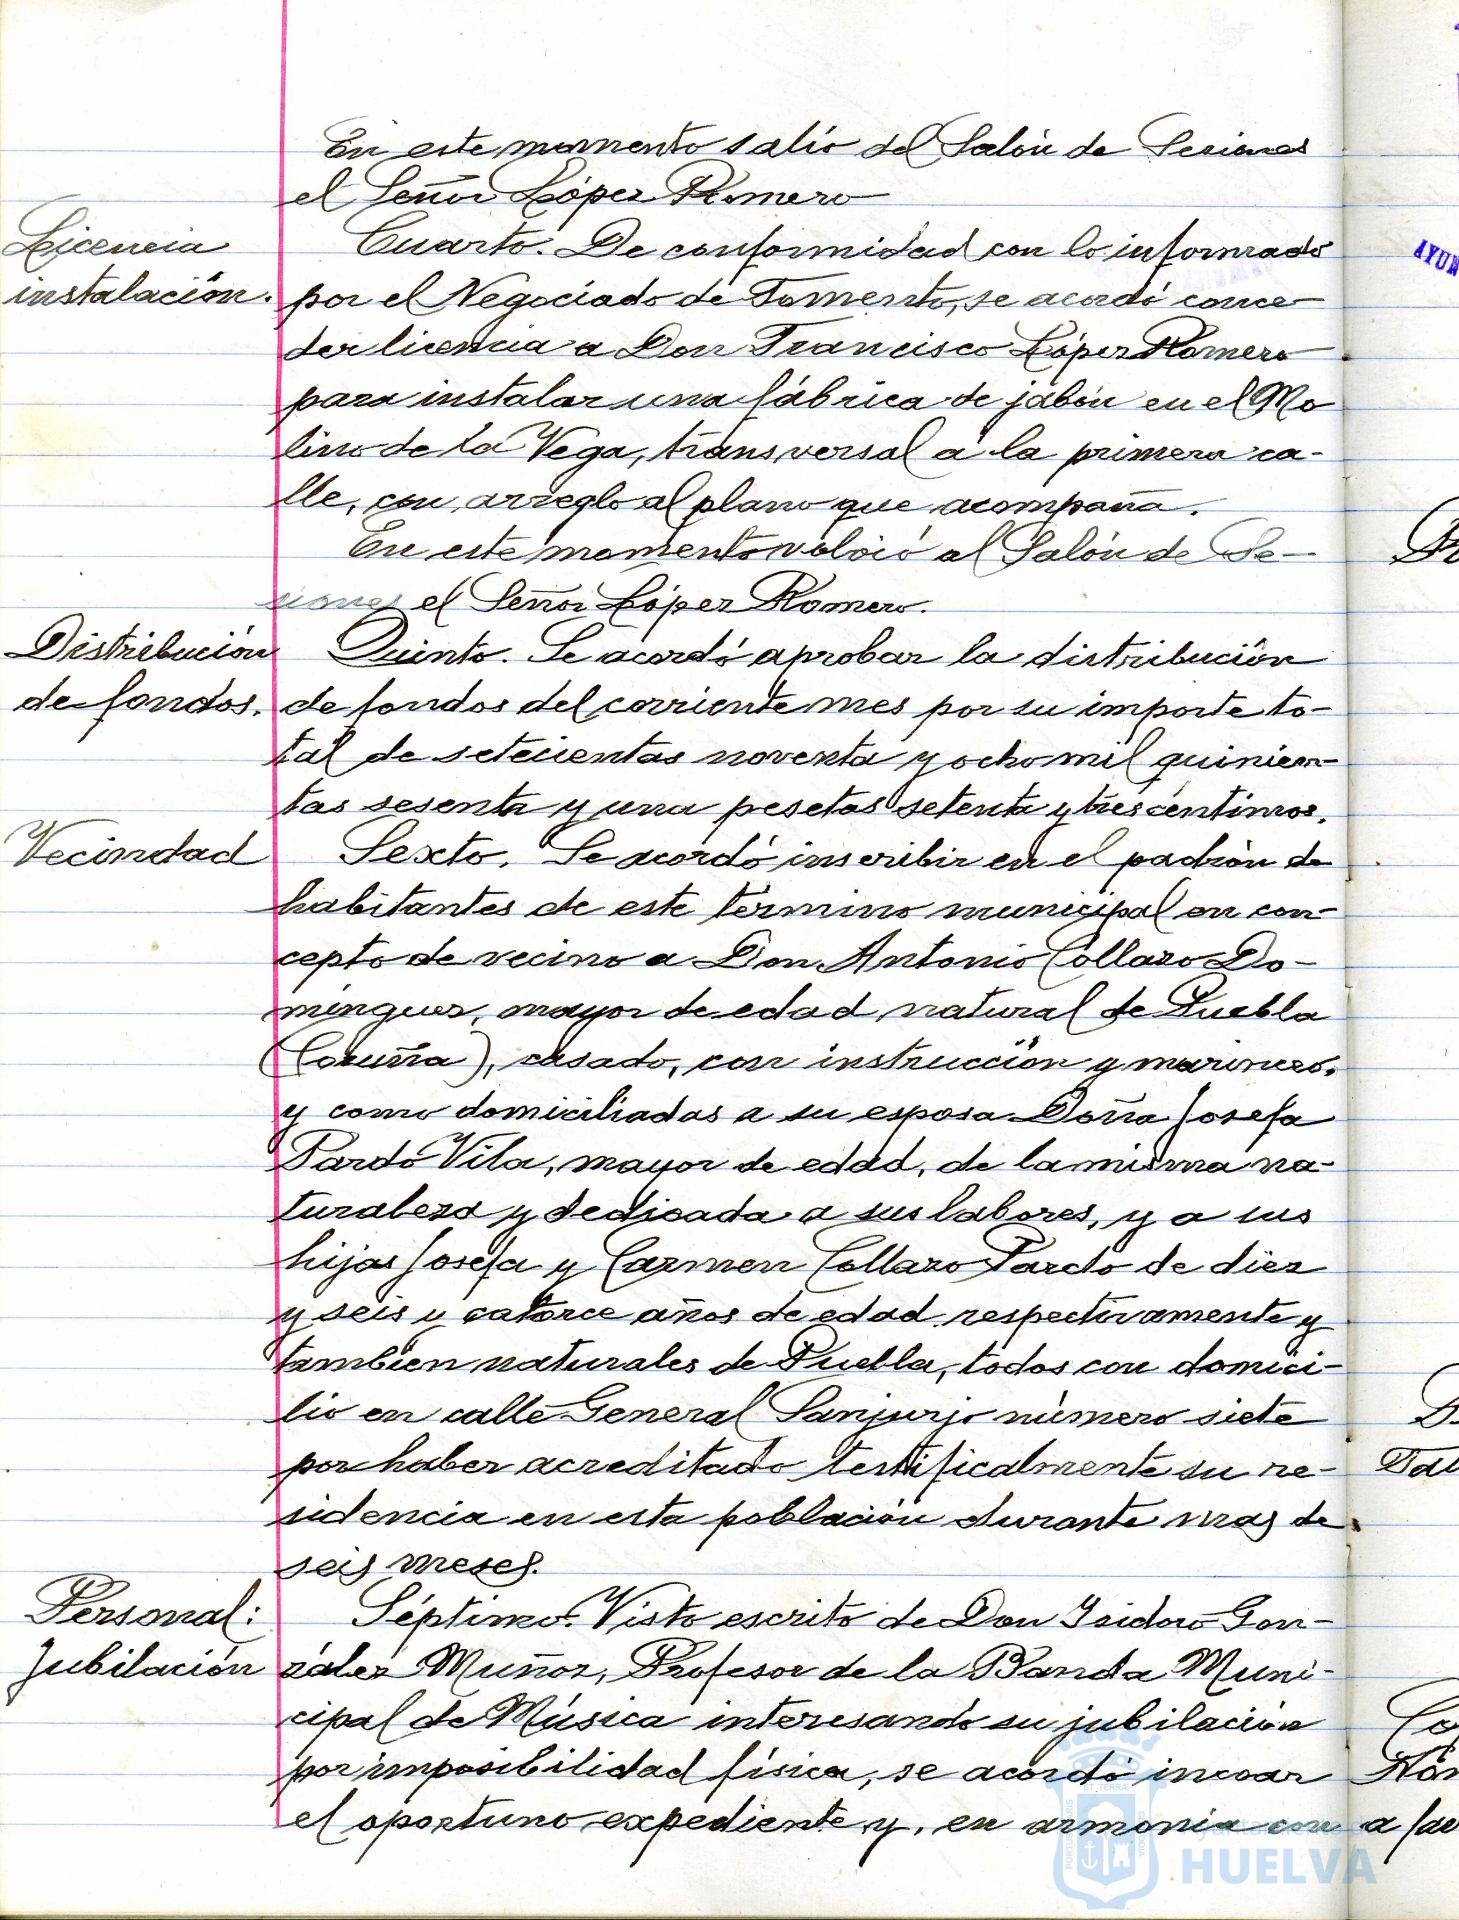 En este momento salió del Salón de Sesiones
el Señor López Romero
Licencia
instalación.
Cuarto. De conformidad con lo informado
por el Negociado de Fomento, se acordó conce-
der licencia a Don Francisco López Romero
para instalar una fábrica de jabón en el Mo
lino de la Vega, transversal a la primera ca-
lle, con arreglo al plano que acompaña.
En este momento volvió al Salón de Se-
siones el Señor López Romero.
Distribución
de fondos.
Quinto. Se acordó aprobar la distribución
de fondos del corriente mes por su importe to-
tal de setecientas noventa y ocho mil quinien-
tas sesenta y una pesetas setenta y tres céntimos.
Vecindad
Sexto. Se acordó inscribir en el padrón de
habitantes de este término municipal en con-
cepto de vecino a Don Antonio Collazo Do-
mínguez, mayor de edad, natural de Puebla
(Coruña), casado, con instrucción y marinero,
y como domiciliadas a su esposa Doña Josefa
Pardo Vila, mayor de edad, de la misma na-
turaleza y dedicada a sus labores, y a sus
hijas Josefa y Carmen Collazo Pardo de diez
y seis y catorce años de edad respectivamente y
tambien naturales de Puebla, todos con domici-
lio en calle General Sanjurjo número siete
por haber acreditado testificalmente su re-
sidencia en esta población durante mas de
seis meses.
Personal:
Jubilación
Séptimo. Visto escrito de Don Isidoro Gon-
zález Muñoz, Profesor de la Banda Muni-
cipal de Música interesando su jubilación
por imposibilidad física, se acordó incoar
el oportuno expediente y, en armonía con
HUELVA